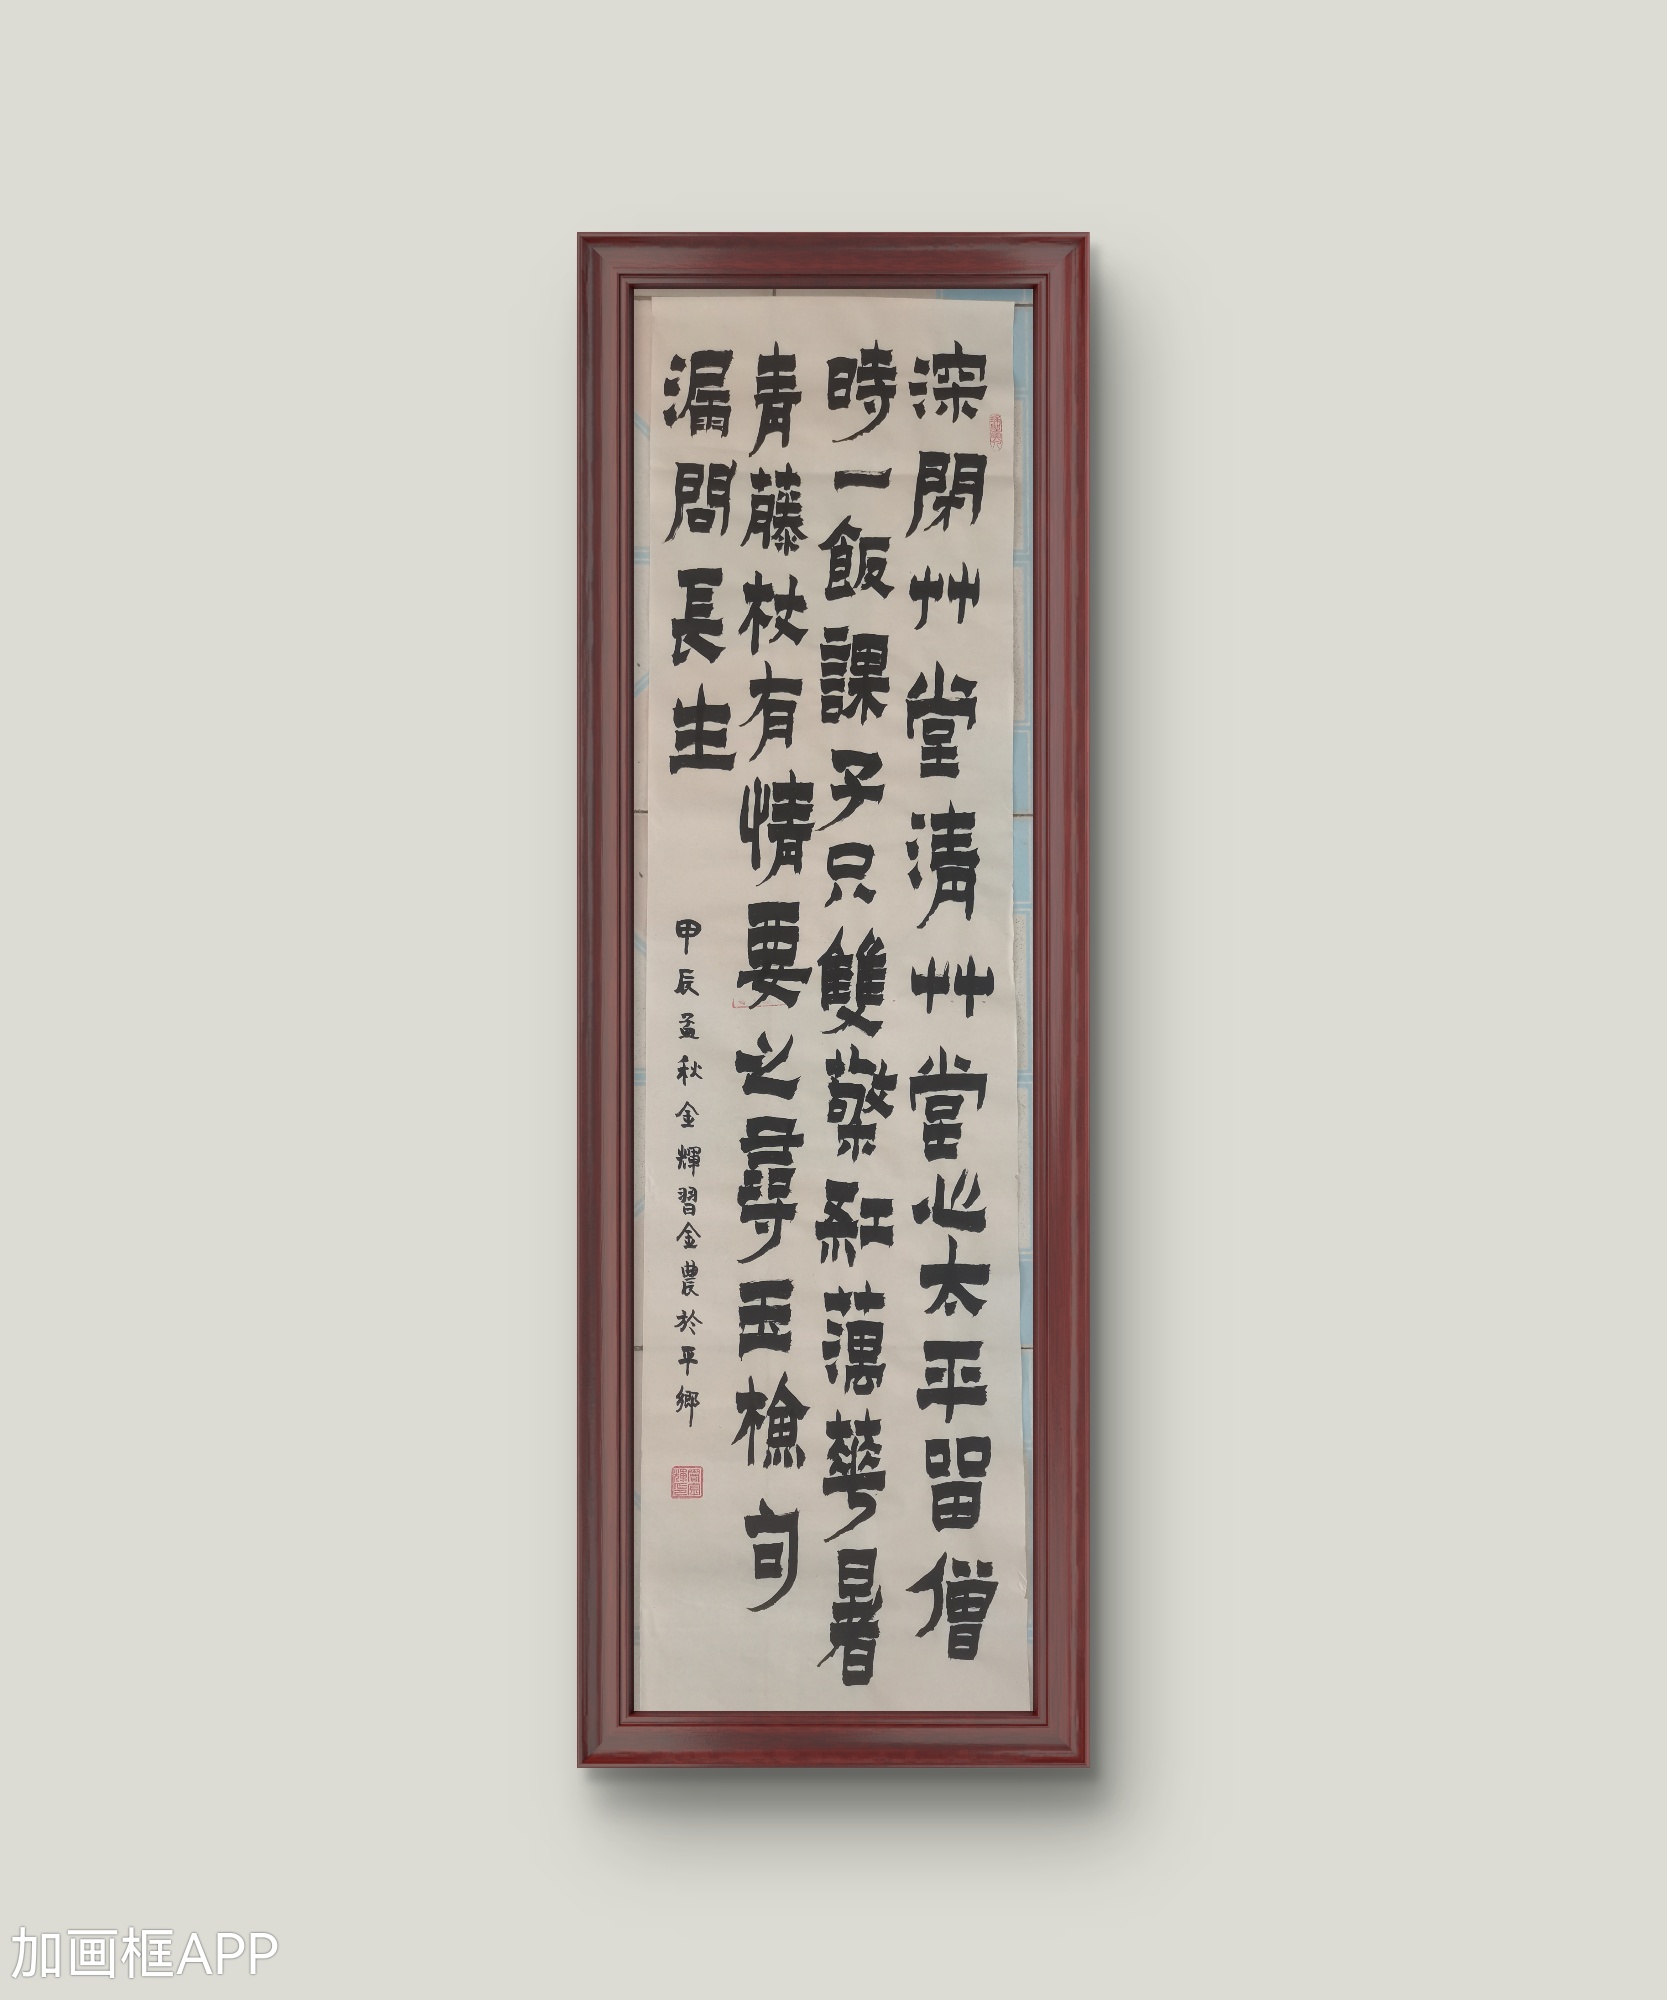 深閉艸堂清艸堂心太平留僧
時一飯課子只雙檠紅藕華暑
青藤杖有情要之尋玉檢句
漏問長生
甲辰孟秋金輝習金農於平鄉
加画框APP